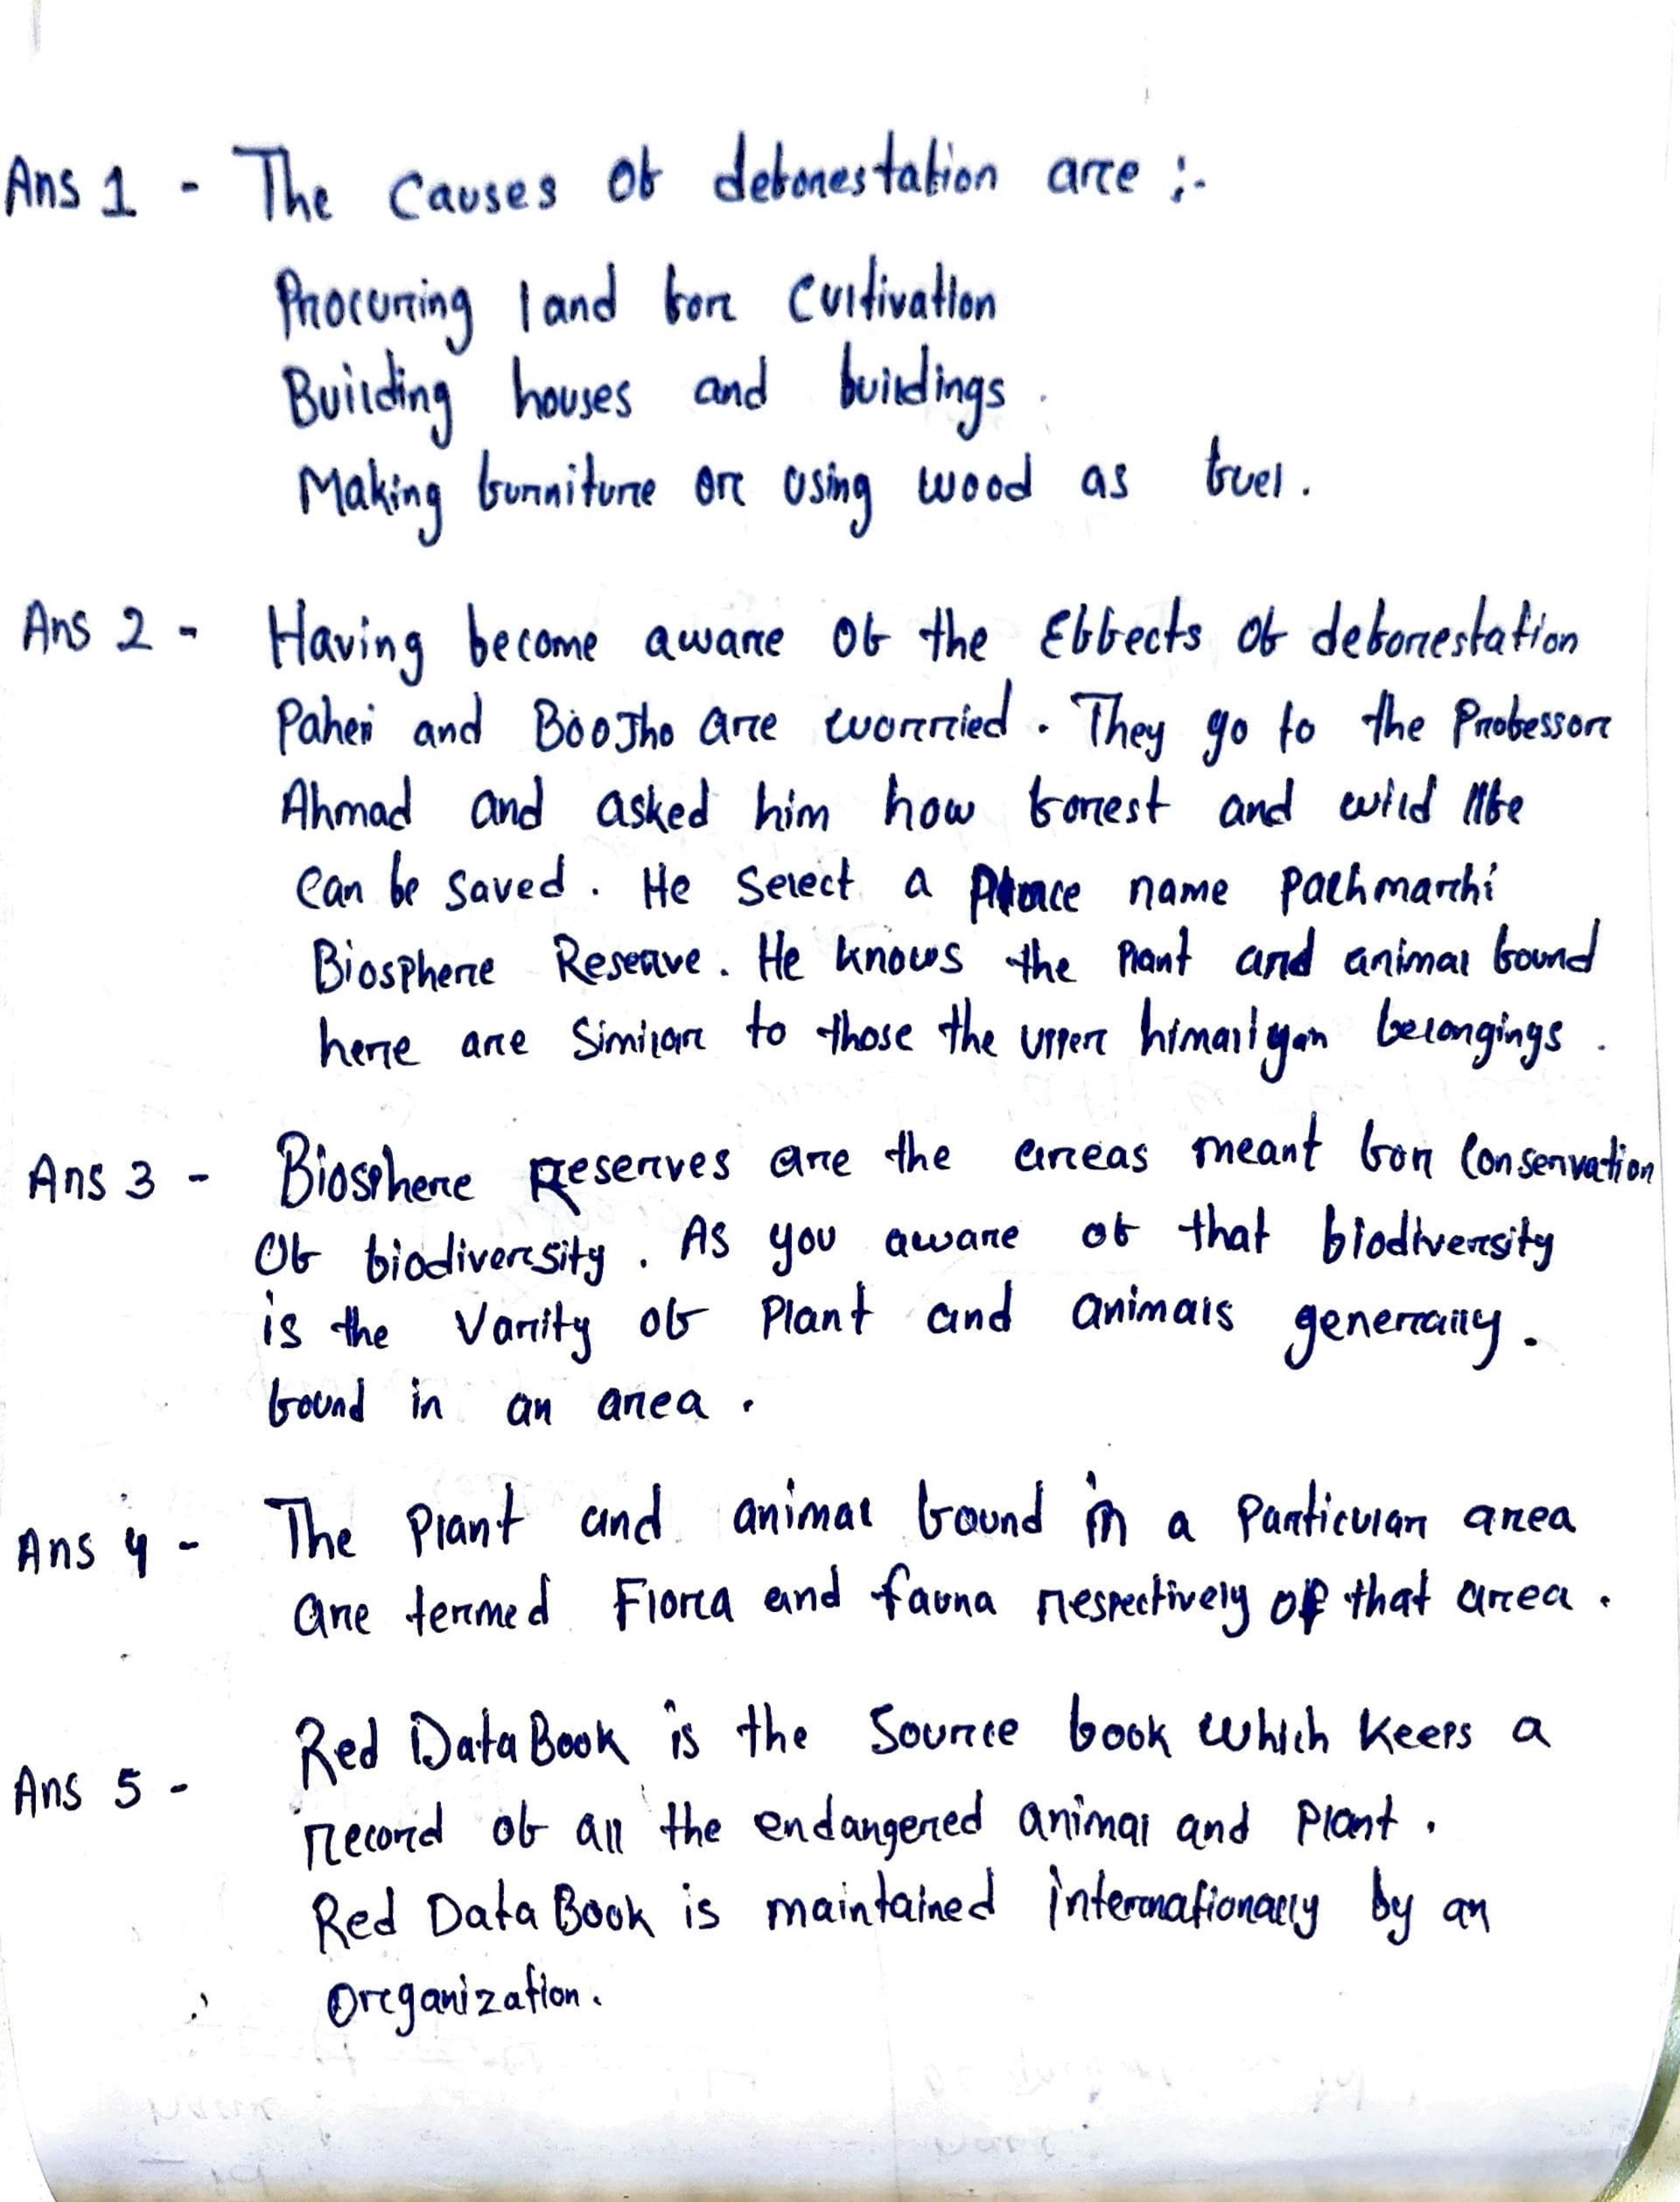 Ans 1 - The Causes Of deforestation are :-
Procuring land for Cultivation
Building houses and buildings.
Making furniture or using wood as fuel.
Ans 2 - Having become aware Of the Effects Of deforestation
Paheli and BooJho are worried. They go to the Professor
Ahmad and asked him how forest and wild life
Can be saved. He Select a Place name Pachmarhi
Biosphere Reserve. He knows the Plant and animal found
here are Similar to those the upper himailyan belongings.
Ans 3 - Biosphere Reserves are the areas meant for Conservation
Of biodiversity. As you aware of that biodiversity
is the Varity of Plant and animals generally.
found in an area.
Ans 4 - The Plant and animal found in a Particular area
are termed Flora and fauna respectively of that area.
Ans 5 - Red Data Book is the Source book which Keeps a
record of all the endangered animal and Plant.
Red Data Book is maintained internationally by an
Organization.